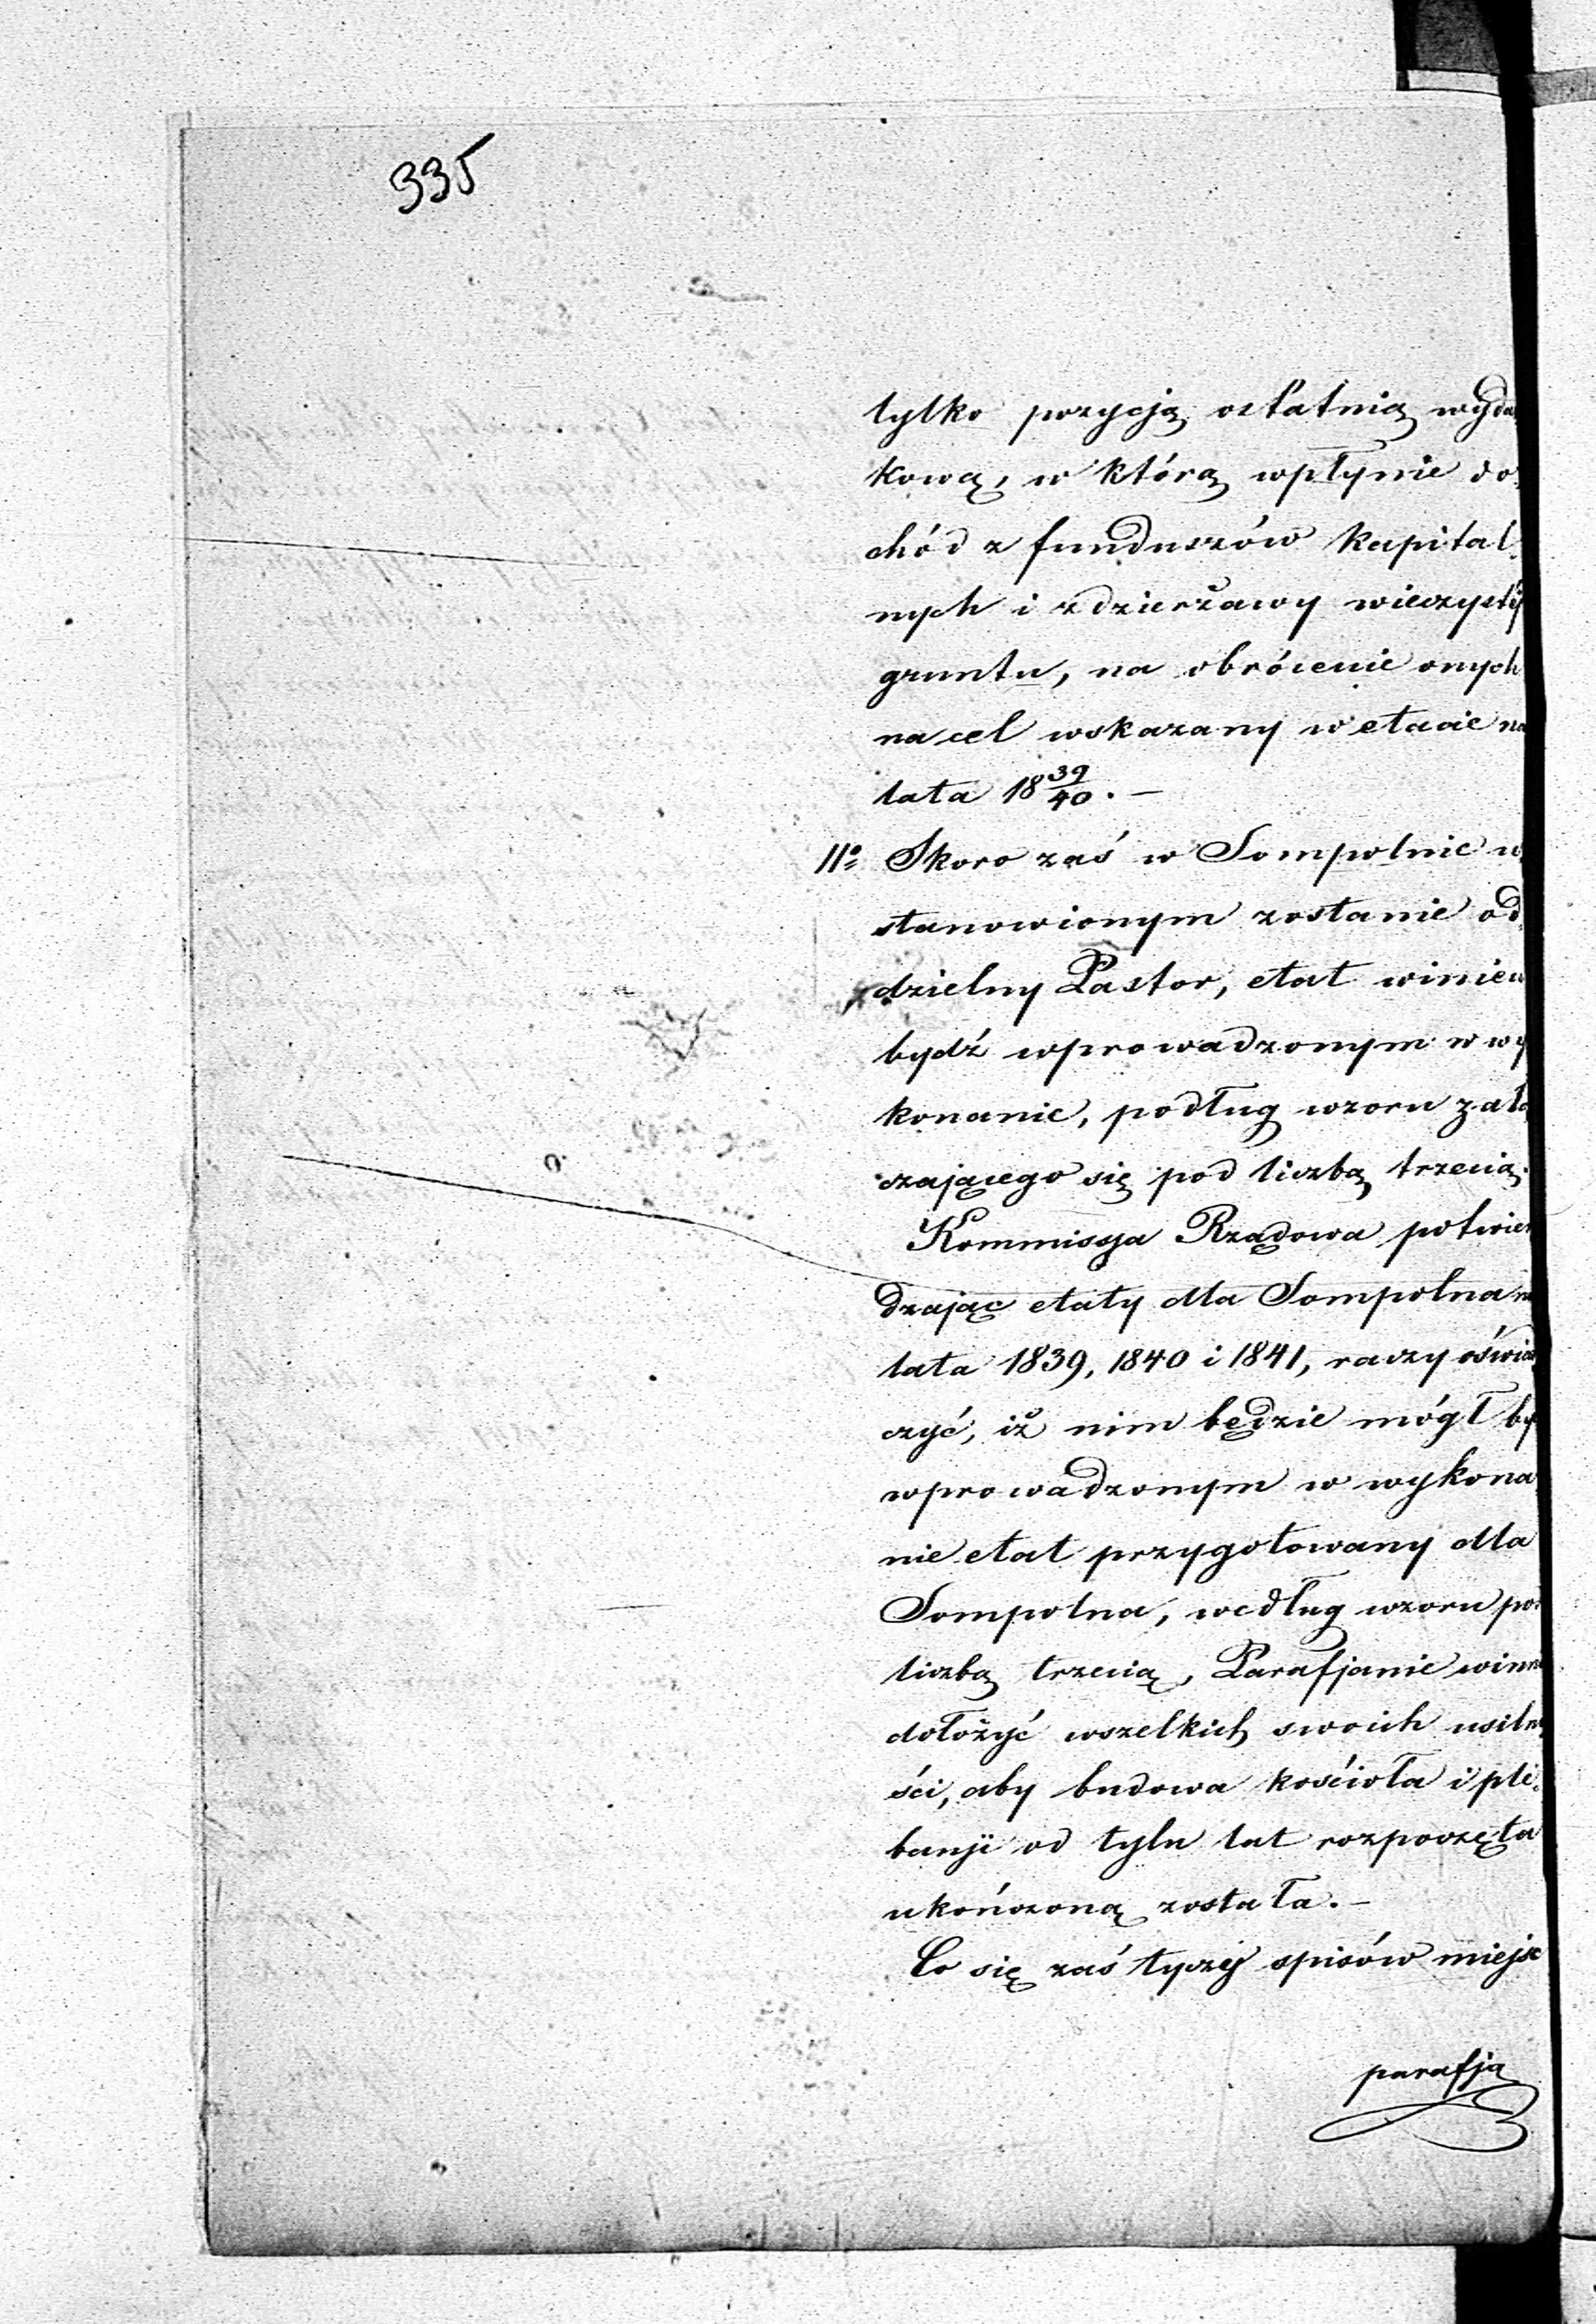 335
tylko pozycją ostatnią wyda
kową, w którą wpłynie do
chód z funduszów kapital
nych i z dzierżawy wieczystéj
gruntu, na obrócenie onych
na cel wskazany w etacie na
lata 18 39/40. —
IIo Skoro zaś w Sompolnie u
stanowionym zostanie od
dzielny Pastor, etat winien
bydź wprowadzonym w wy
konanie, podług wzoru załą
czającego się pod liczbą trzecią.
Kommissya Rządowa potwier
dzając etaty dla Sompolna na
lata 1839, 1840 i 1841, raczy oświad
czyć, iż nim będzie mógł by
wprowadzonym w wykona
nie etat przygotowany dla
Sompolna, według wzoru pod
liczbą trzecią, Parafjanie winni
dołożyć wszelkich swoich usilno
ści, aby budowa kościoła i ple
banji od tylu lat rozpoczęta
ukończoną została. —
Co się zaś tyczy spisów miejsc
parafją